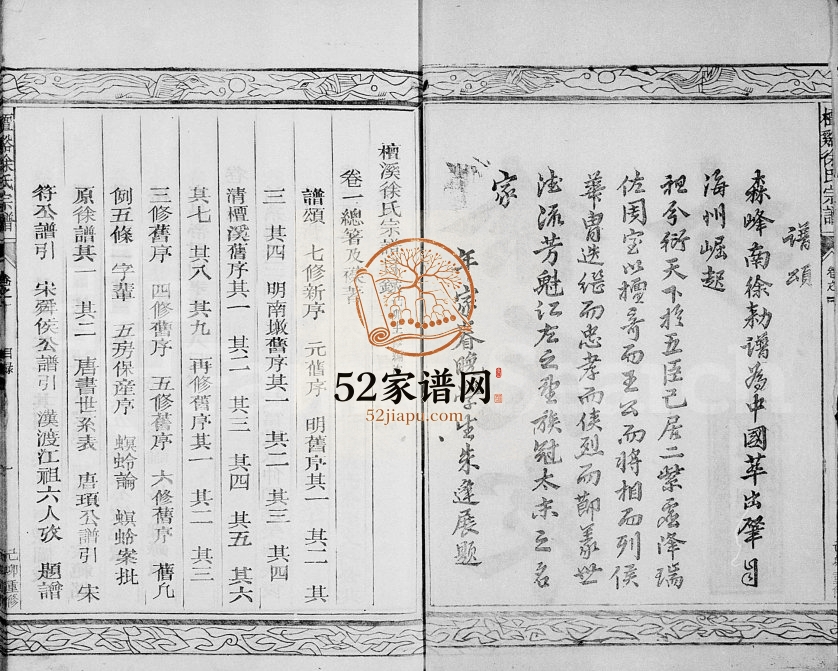 譜頌
森峰南徐勅譜為中國華出肇自
海州崛起
祖分衍天下於五臣已居二紫虛降瑞
佐周室以檀奇而王公而將相而列侯
華冑迭繼而忠孝而俠烈而節義世
德流芳魁江左之聖族冠太末之名
家
年家眷晚學生朱逢展題
檀谿徐氏宗譜
檀溪徐氏宗
卷一總箸及
譜頌 七修新序 元舊序 明舊序其一 其二 其
三 其四 明南墩舊序其一 其二 其三 其四
清檀溪舊序其一 其二 其三 其四 其五 其六
其七 其八 其九 再修舊序其一 其二 其三
三修舊序 四修舊序 五修舊序 六修舊序 舊凡
例五條 字輩 五房保産序 螟蛉論 螟蛉案批
原徐譜其一 其二 唐書世系表 唐頊公譜引 宋
符公譜引 宋舜俟公譜引 漢渡江祖六人攷 題譜
檀谿徐氏宗譜
目録
一
己卯重修
52家谱网
52jiapu.com